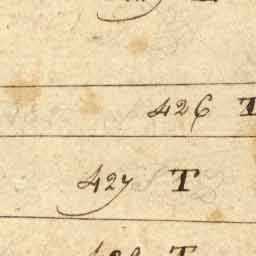 426 T
427 T